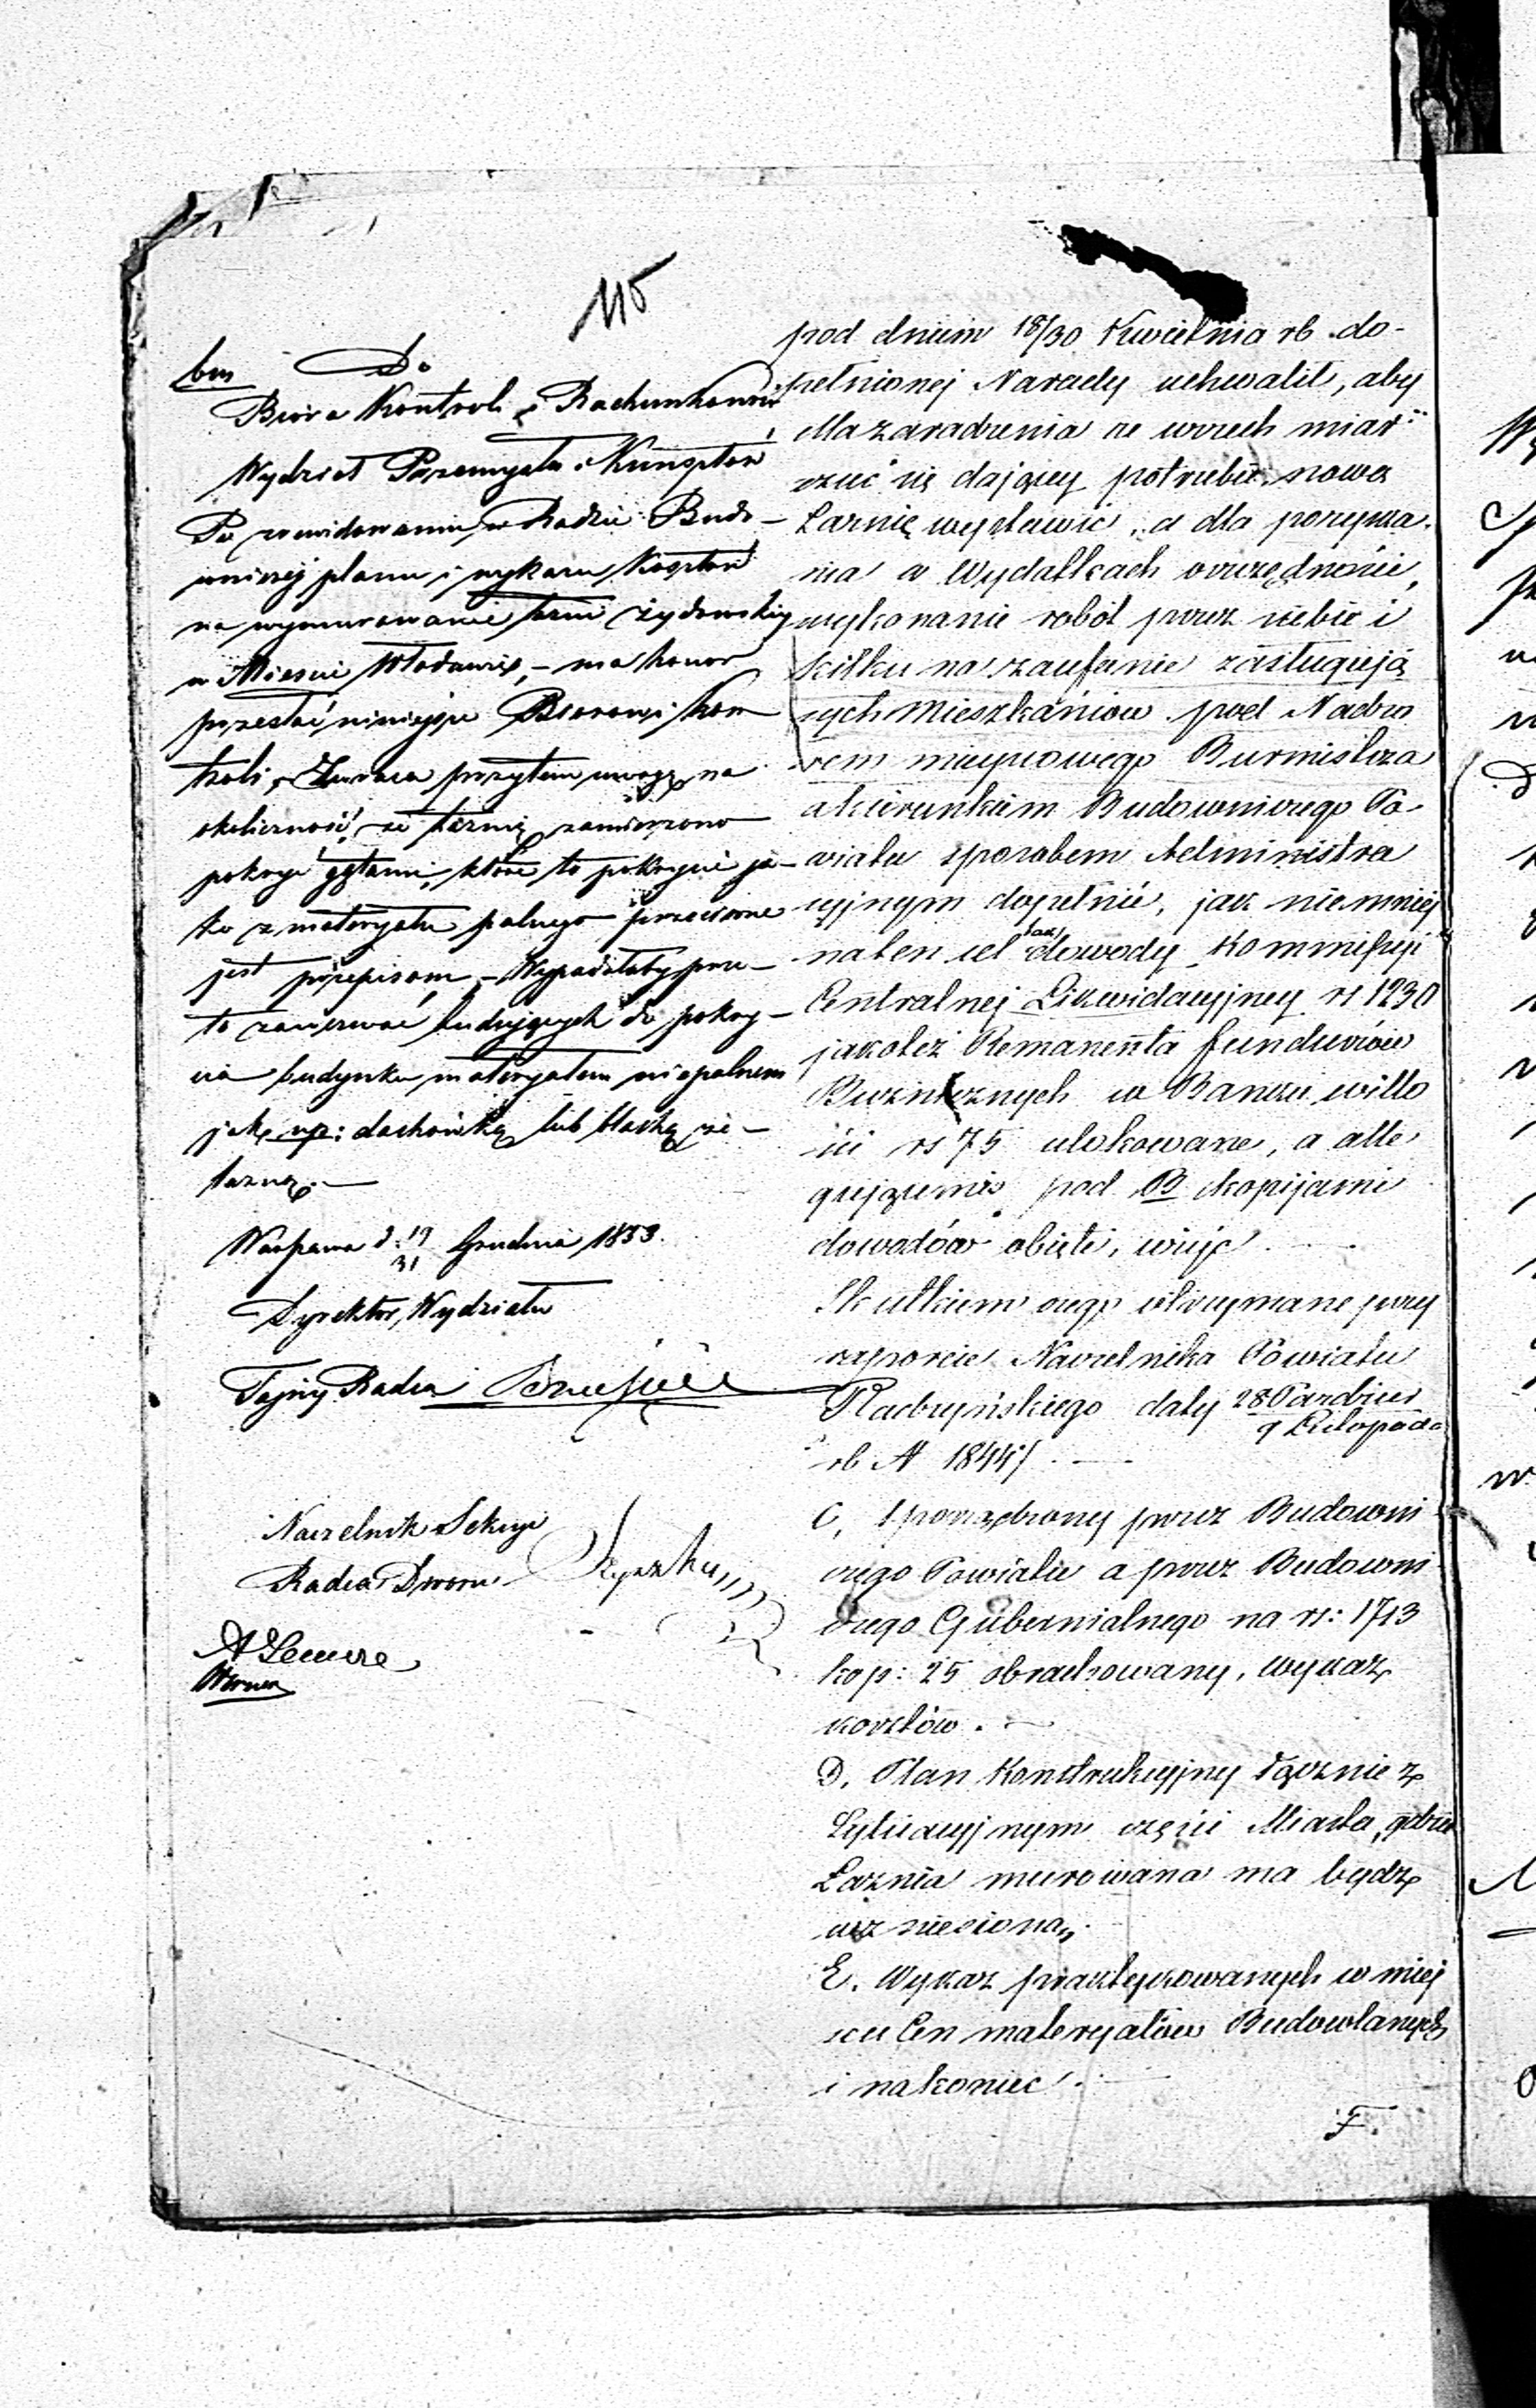 115
bm Do
Biura Kontroli i Rachunkowości
Wydział Przemysłu i Kunsztów
Po zrewidowaniu w Radzie Budo-
wniczej planu i wykazu kosztów
na wymurowanie łaźni żydowskiej
w Mieście Włodawie, – ma honor
przesłać niniejsze Biurowi Kon
troli, zwraca przytem uwagę na
okoliczność, że łaźnię zamierzono
pokryć gątami, które to pokrycie ja-
ko z materyału palnego przeciwne
jest przepisom, – Wypadałoby prze-
to zawezwać budujących do pokry-
cia budynku materyałem niepalnem
jak np: dachówką lub blachą że-
lazną. —
Warszawa d. 19/31 Grudnia 1853.
Dyrektor Wydziału
Tajny Radca
Naczelnik Sekcyi
Radca Dworu
pod dniem 18/30 Kwietnia rb. do-
pełnionej Narady uchwalił, aby
dla zaradzenia ze wszech miar
czuć się dającej potrzebie, nową
Łaźnię wystawić, a dla pozyska-
nia w Wydatkach oszczędności,
wykonanie robót przez siebie i
kilku na zaufanie zasługują
cych Mieszkańców pod Nadzo
rem miejscowego Burmistrza
a kierunkiem Budowniczego Po-
wiatu sposobem Administra
cyjnym dopełnić, jak niemniej
na ten cel dowody Kommissyi
Centralnej Likwidacyjney rs 1230
jakoteż Remanenta funduszów
Bużniczznych w Banku w ilo
ści rs 75 ulokowane, a alle
gującemi pod B kopijami
dowodów objęte, więc —
Skutkiem czego otrzymane przy
raporcie Naczelnika Powiatu
Radzyńskiego daty 28 Paździer
9 Listopada
rb N 18447 —
C, Sporządzony przez Budowni
czego Powiatu a przez Budowni
czego Gubernialnego na rs: 1713
kop: 25 obrachowany, wykaz
kosztów. —
D, Plan Konstrukcyjny łącznie z
Sytuacyjnym części Miasta, gdzie
Łaźnia murowana ma będz
wzniesiona,
E. Wykaz praktykowanych w miej
scu Cen materyałów Budowlanych
i nakoniec —
F.